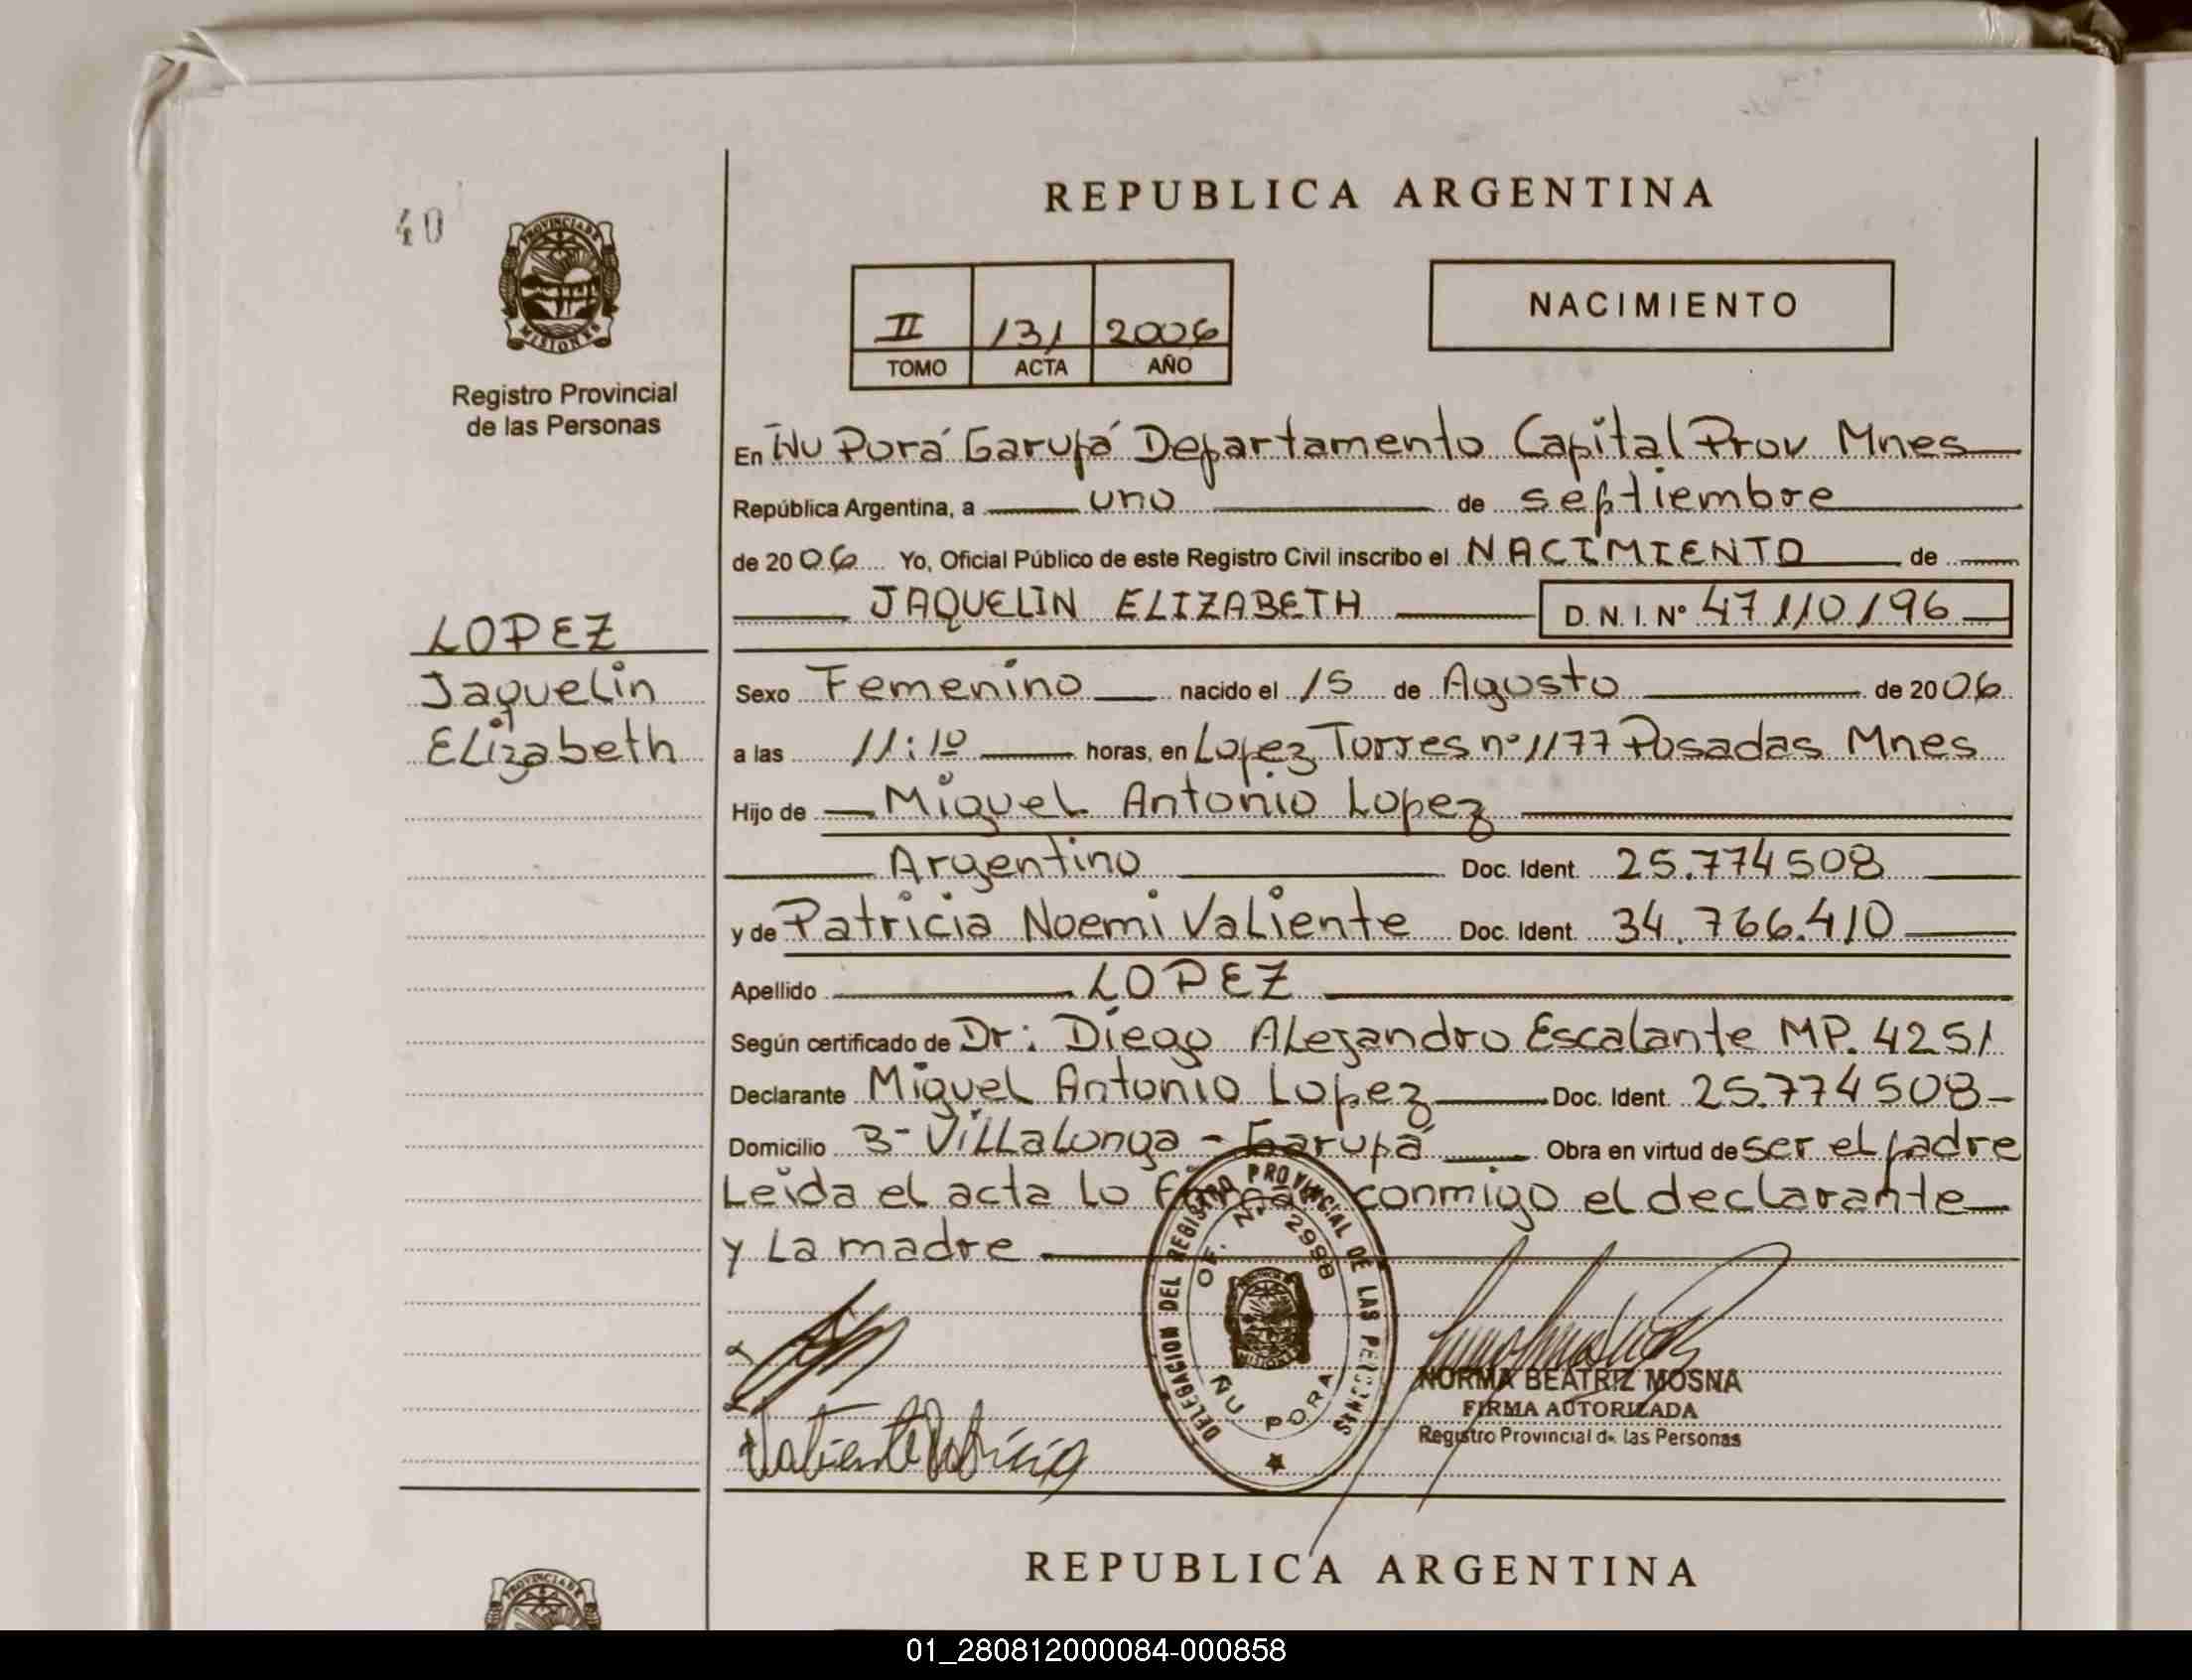 40
PROVINCIA DE
MISIONES
Registro Provincial
de las Personas
LOPEZ
Jaquelin
Elizabeth
REPUBLICA ARGENTINA
II 131 2006
TOMO ACTA AÑO
NACIMIENTO
En Ñu Porá Garupá Departamento Capital Prov Mnes
República Argentina, a uno de septiembre
de 2006 Yo, Oficial Público de este Registro Civil inscribo el NACIMIENTO de
JAQUELIN ELIZABETH D.N.I. Nº 47110196
Sexo Femenino nacido el 15 de Agosto de 2006
a las 11:10 horas, en Lopez Torres nº 1177 Posadas Mnes
Hijo de Miguel Antonio Lopez
Argentino Doc. Ident. 25.774508
y de Patricia Noemi Valiente Doc. Ident. 34.766.410
Apellido LOPEZ
Según certificado de Dr: Diego Alejandro Escalante MP. 4251
Declarante Miguel Antonio Lopez Doc. Ident. 25.774508
Domicilio B- Villalonga - Garupá Obra en virtud de ser el padre
Leida el acta lo conmigo el declarante
y la madre
DELEGACION DEL REGISTRO PROVINCIAL DE LAS PERSONAS
OF. Nº 2998
MISIONES
ÑU PORA
Valiente Patricia
NORMA BEATRIZ MOSNA
FIRMA AUTORIZADA
Registro Provincial de las Personas
REPUBLICA ARGENTINA
PROVINCIA DE
01_280812000084-000858